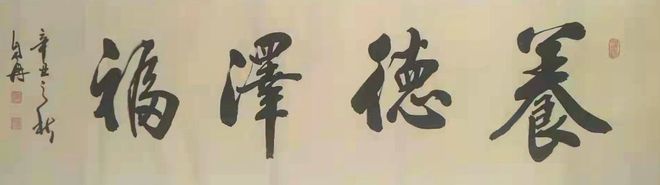 養德澤福
辛丑之秋